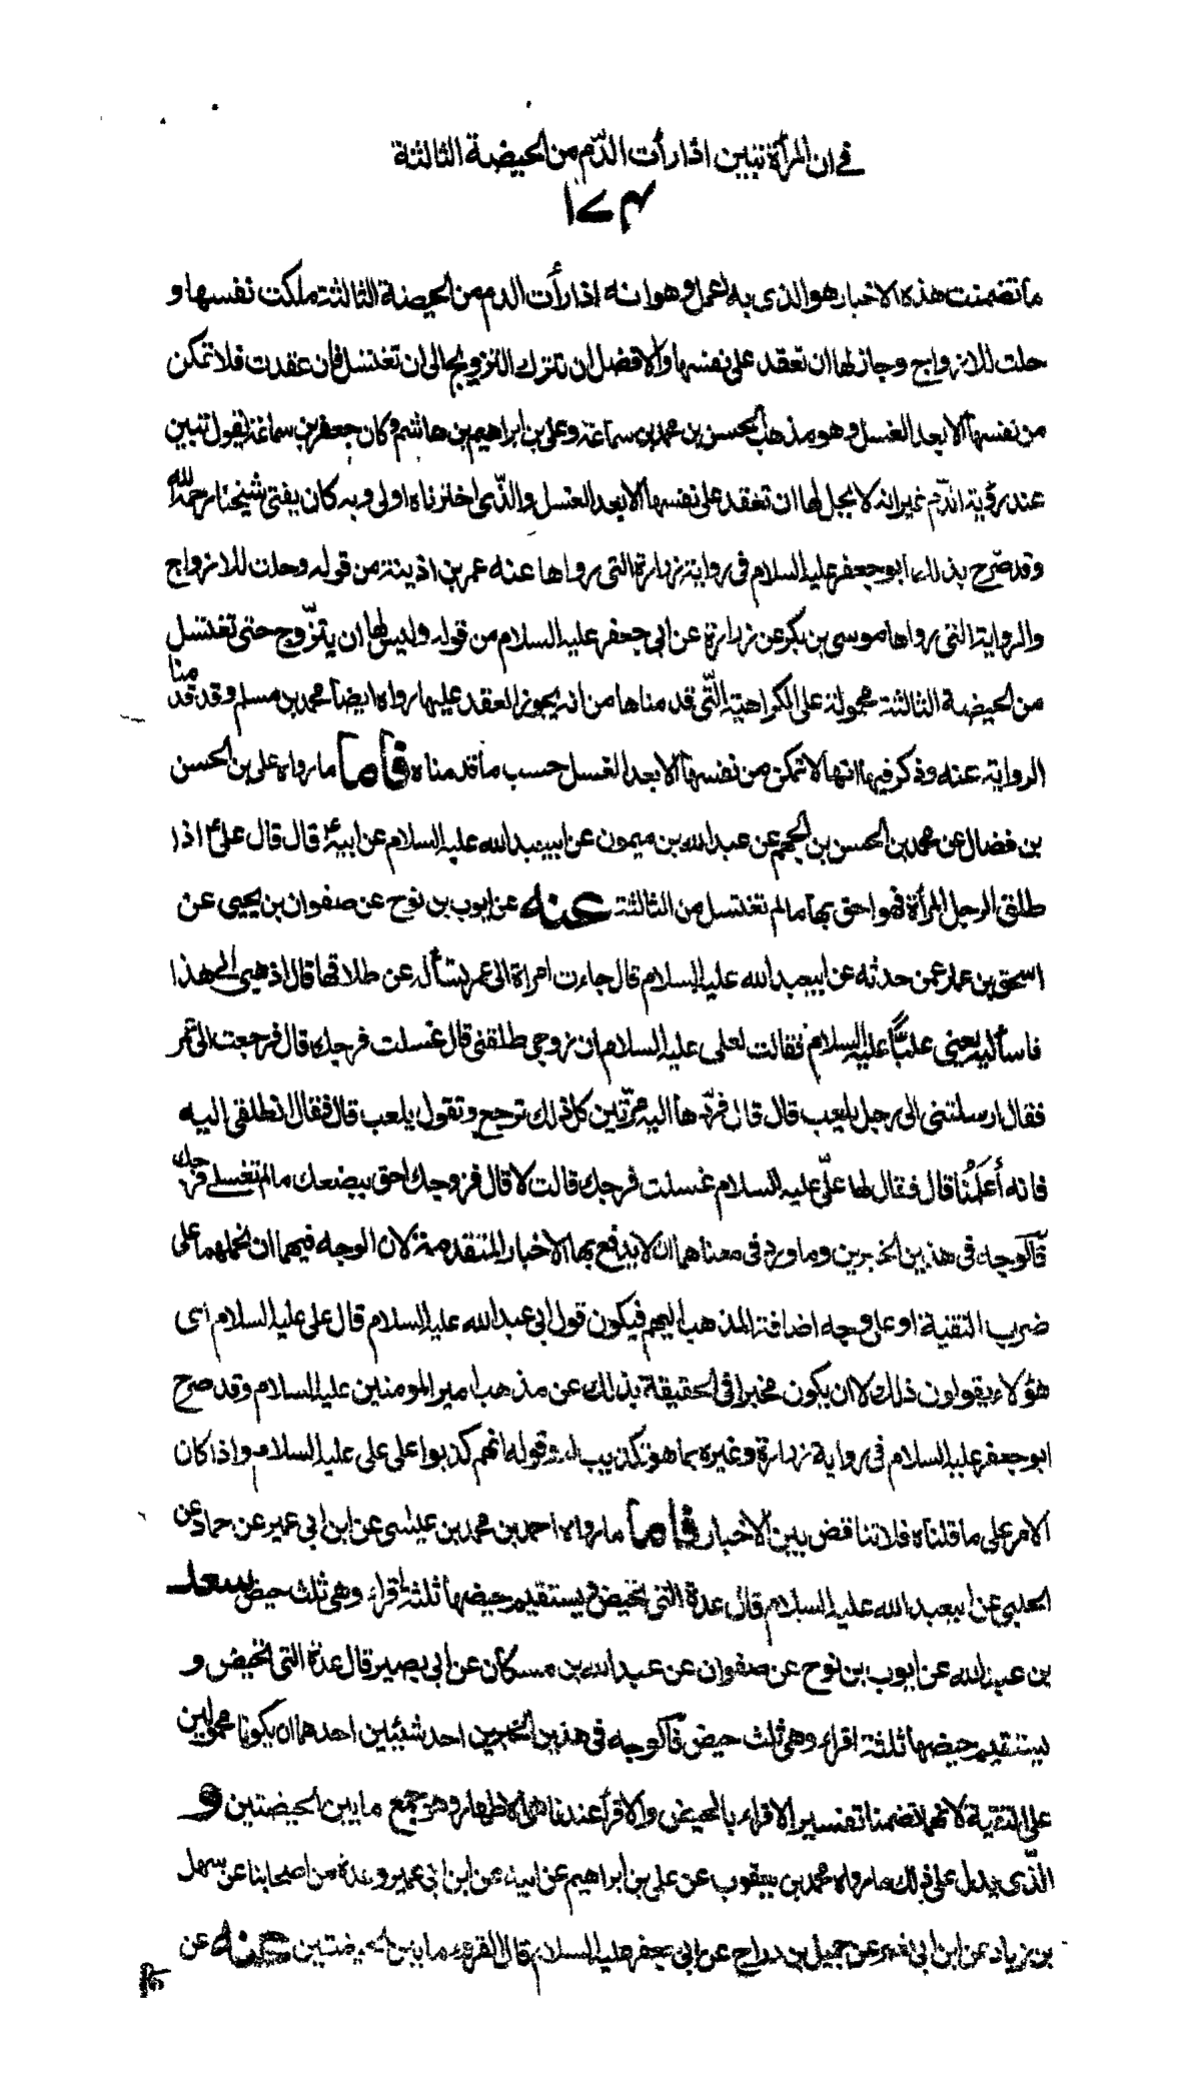 في ان المرأة تبين اذا رأت الدّم من الحيضة الثالثة
ما تضمنت هذه الاخبار هو الذى به اعمل وهو انه اذا رأت الدم من الحيضة الثالثة ملكت نفسها و
حلت للازواج وجاز لها ان تعقد على نفسها والافضل ان تترك التزويج الى ان تغتسل فان عقدت فلا تمكن
من نفسها الا بعد الغسل وهو مذهب الحسن بن محمد بن سماعة وعلى بن ابراهيم بن هاشم وكان جعفر بن سماعة يقول تبين
عند رؤية الدّم غير انه لا يحل لها ان تعقد على نفسها الا بعد الغسل والذّى اخترناه اولى وبه كان يفتى شيخنا رحمه الله
وقد صرّح بذلك ابو جعفر عليه السلام فى رواية زرارة التى رواها عنه عمر بن اذينة من قوله وحلت للازواج
والرواية التى رواها موسى بن بكر عن زرارة عن ابى جعفر عليه السلام من قوله وليس لها ان يتزّوج حتى تغتسل
من الحيضة الثالثة محمولة على الكراهية التّى قدمناها من انه يجوز العقد عليها رواه ايضا محمد بن مسلم وقد قدمنا
الرواية عنه وذكر فيها انها لا تمكن من نفسها الا بعد الغسل حسب ما قدمناه فاما ما رواه على بن الحسن
بن فضال عن محمد بن الحسن بن الجهم عن عبدالله بن ميمون عن ابيعبدالله عليه السلام عن ابيه ع قال قال على ع اذا
طلق الرجل المرأة فهو احق بها ما لم تغتسل من الثالثة عنه عن ايوب بن نوح عن صفوان بن يحيى عن
اسحق بن عمار عمن حدثه عن ابيعبدالله عليه السلام قال جاءت امراة الى عمر تسأله عن طلاقها قال اذهبى الى هذا
فاسأليه يعنى عليّاً عليه السلام فقالت لعلى عليه السلام ان زوجى طلقنى قال غسلت فرجك قال فرجعت الى عمر
فقال ارسلتنى الى رجل يلعب قال قال فردّها اليه مرّتين كل ذلك ترجع وتقول يلعب قال فقال انطلقى اليه
فانه أعلمنا قال فقال لها علىّ عليه السلام غسلت فرجك قالت لا قال فزوجك احق ببضعك ما لم تغسلى فرجك
فالوجه فى هذين الخبرين وما ورد فى معناهما ان لا يدفع بها الاخبار المتقدمة لان الوجه فيهما ان نحملهما على
ضرب التقية او على وجه اضافة المذهب اليهم فيكون قول ابى عبدالله عليه السلام قال على عليه السلام اى
هؤلاء يقولون ذلك لا ان يكون مخبرا فى الحقيقة بذلك عن مذهب امير المومنين عليه السلام وقد صرح
ابو جعفر عليه السلام فى رواية زرارة وغيره بما هو تكذيب لهم قوله انهم كذبوا على على عليه السلام واذا كان
الامر على ما قلناه فلا تناقض بين الاخبار فاما ما رواه احمد بن محمد بن عيسى عن ابن ابى عمير عن حماد عن
الحلبى عن ابيعبدالله عليه السلام قال عدة التى تحيض ويستقيم حيضها ثلثة اقراء وهى ثلث حيض سعد
بن عبدالله عن ايوب بن نوح عن صفوان عن عبدالله بن مسكان عن ابى بصير قال عدة التى تحيض و
يستقيم حيضها ثلثة اقراء وهى ثلث حيض فالوجه فى هذين الخبرين احد شيئين احدهما ان يكونا محمولين
على التقية لانهما تضمنا تفسير الاقراء بالحيض والاقرا عندنا هى الاطهار وهو جمع ما بين الحيضتين و
الذّى يدل على ذلك ما رواه محمد بن يعقوب عن على بن ابراهيم عن ابيه عن ابن ابى عمير وعدة من اصحابنا عن سهل
بن زياد عن ابن ابى نصر عن جميل بن دراج عن ابى جعفر عليه السلام قال القرء ما بين الحيضتين عنه عن